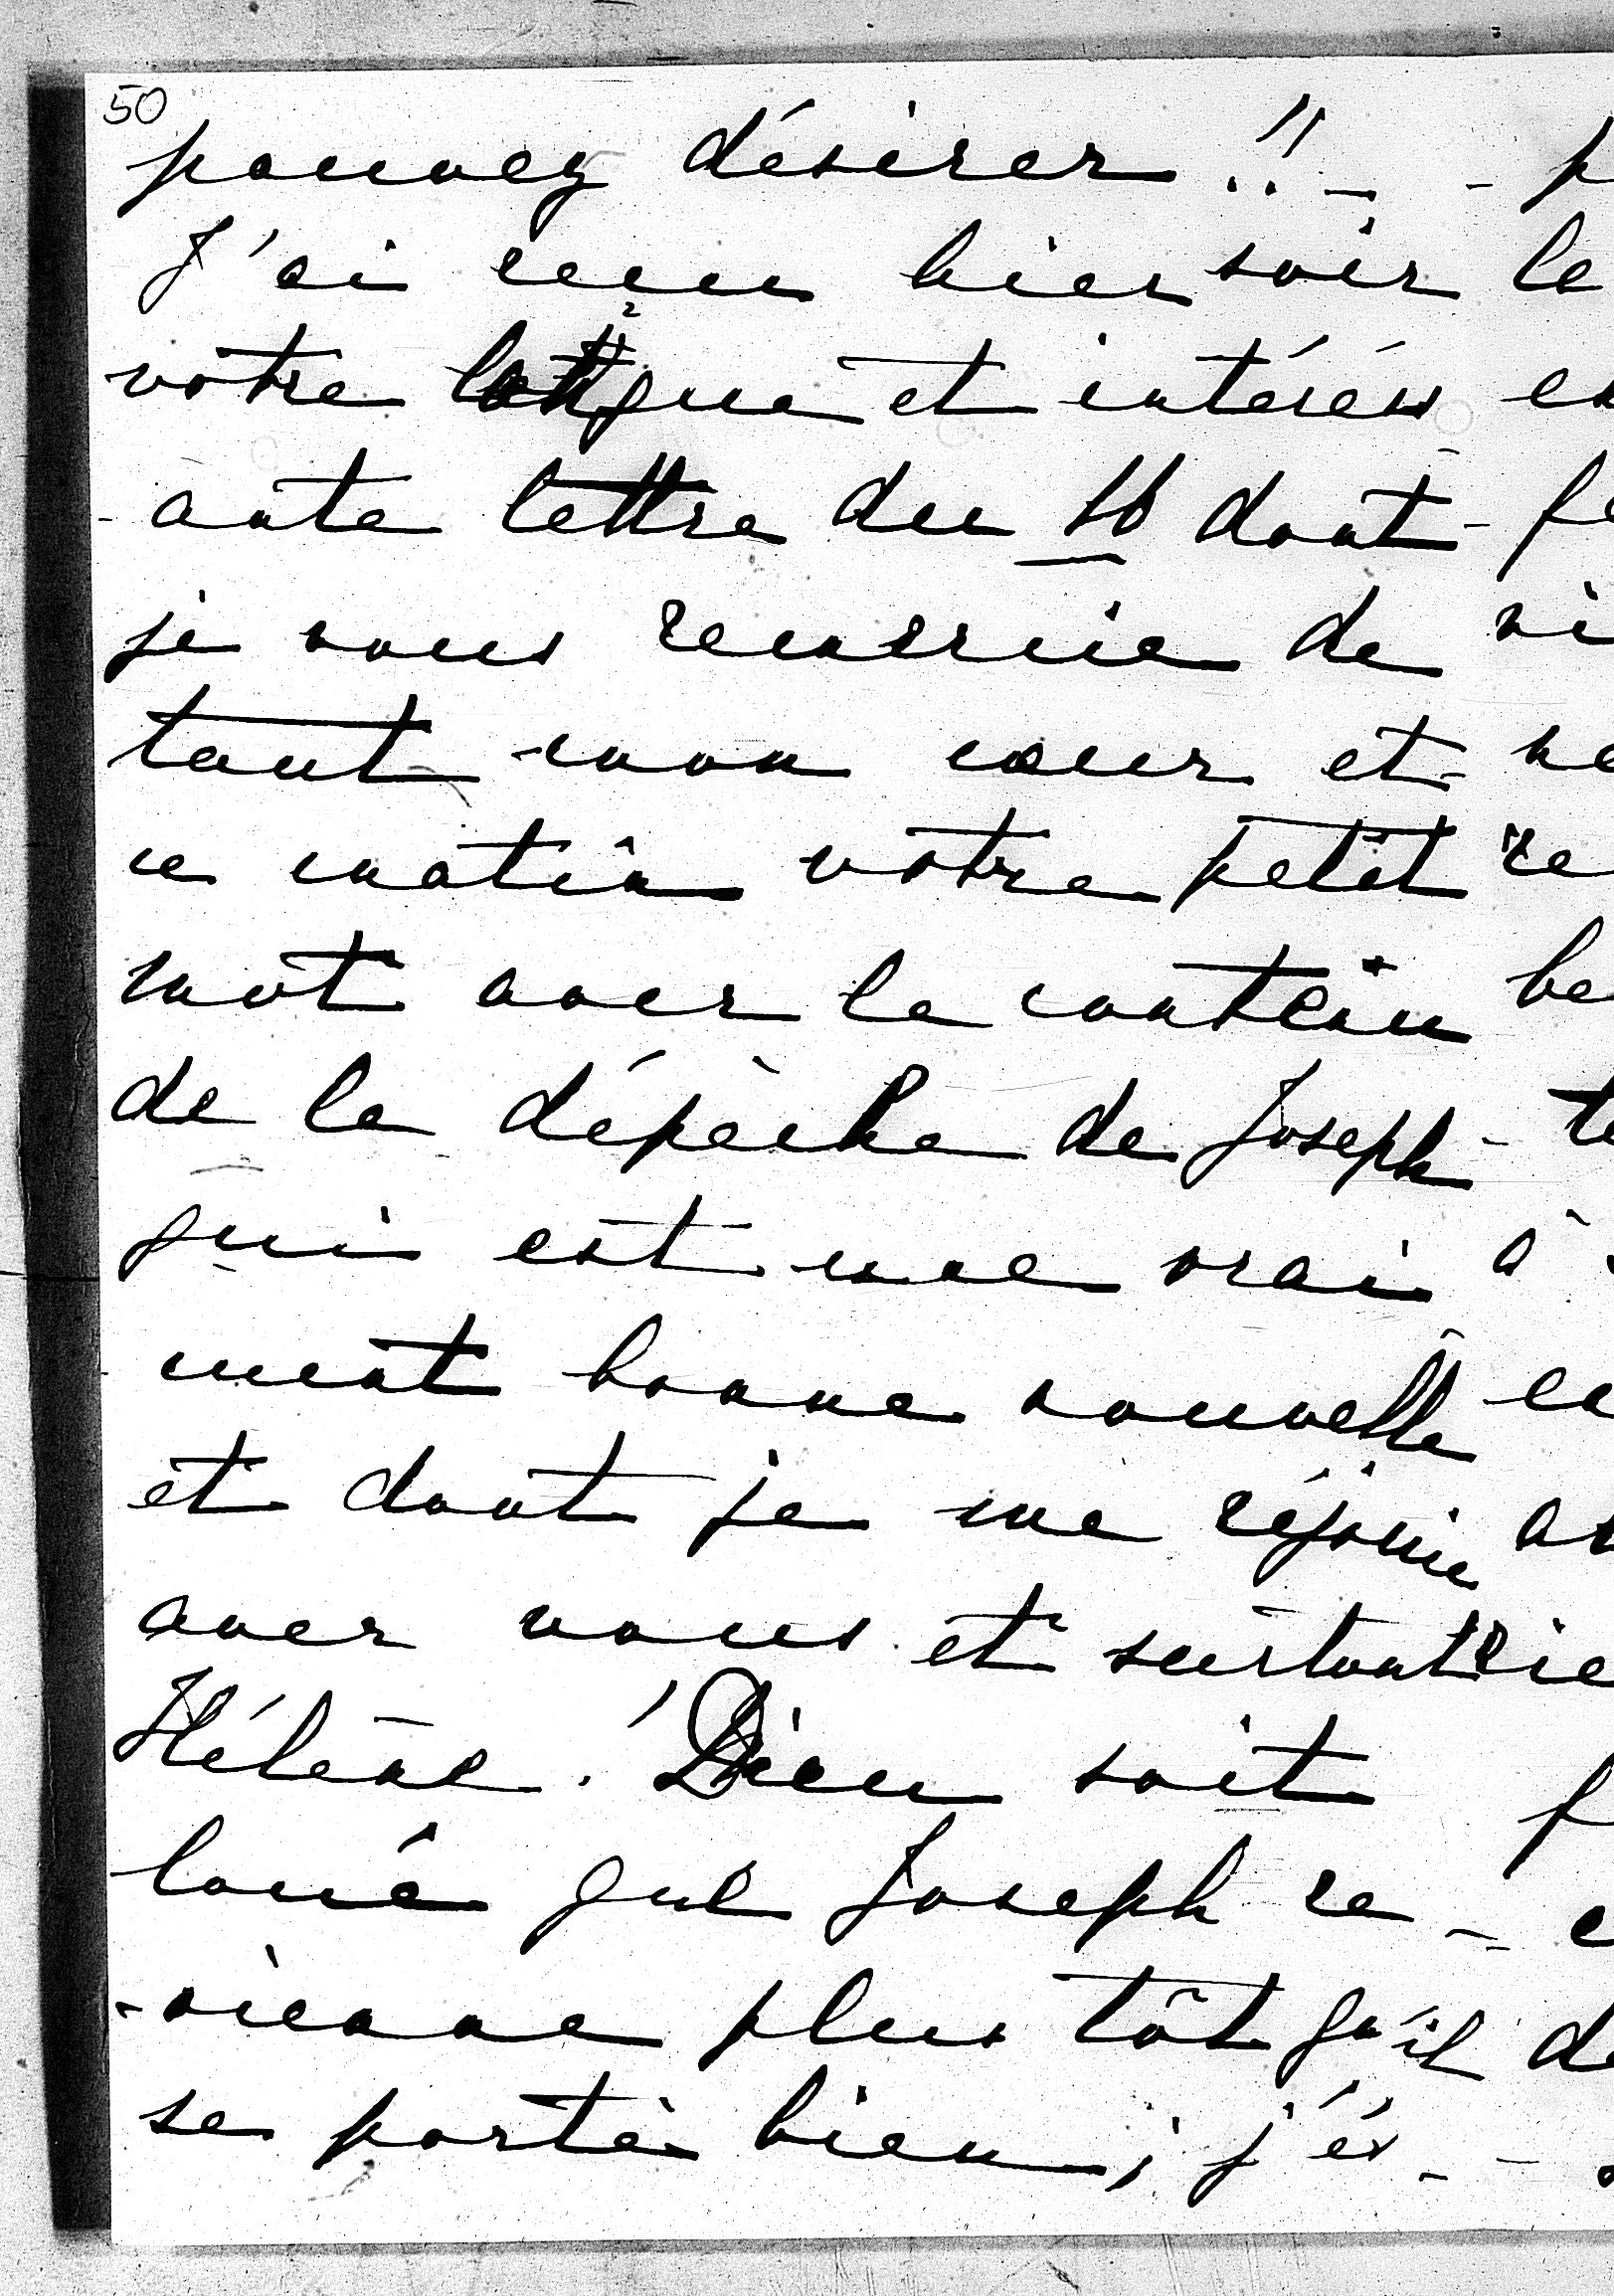 50
pouvez désirer !! - - p
J'ai reçu hier soir le
votre longue et intéres ex
-ante lettre du 16 dont - fe
je vous remercie de vi
tout mon cœur et ne
ce matin votre petit re
mot avec le contenu be
de la dépèche de Joseph - te
qui est une vrai à
-ment bonne nouvelle en
et dont je me réjouie
avec vous et surtout rie
Hélène. Dieu soit f
loué que Joseph re - e
-vienne plus tôt qu'il de
se porte bien, j'és - -